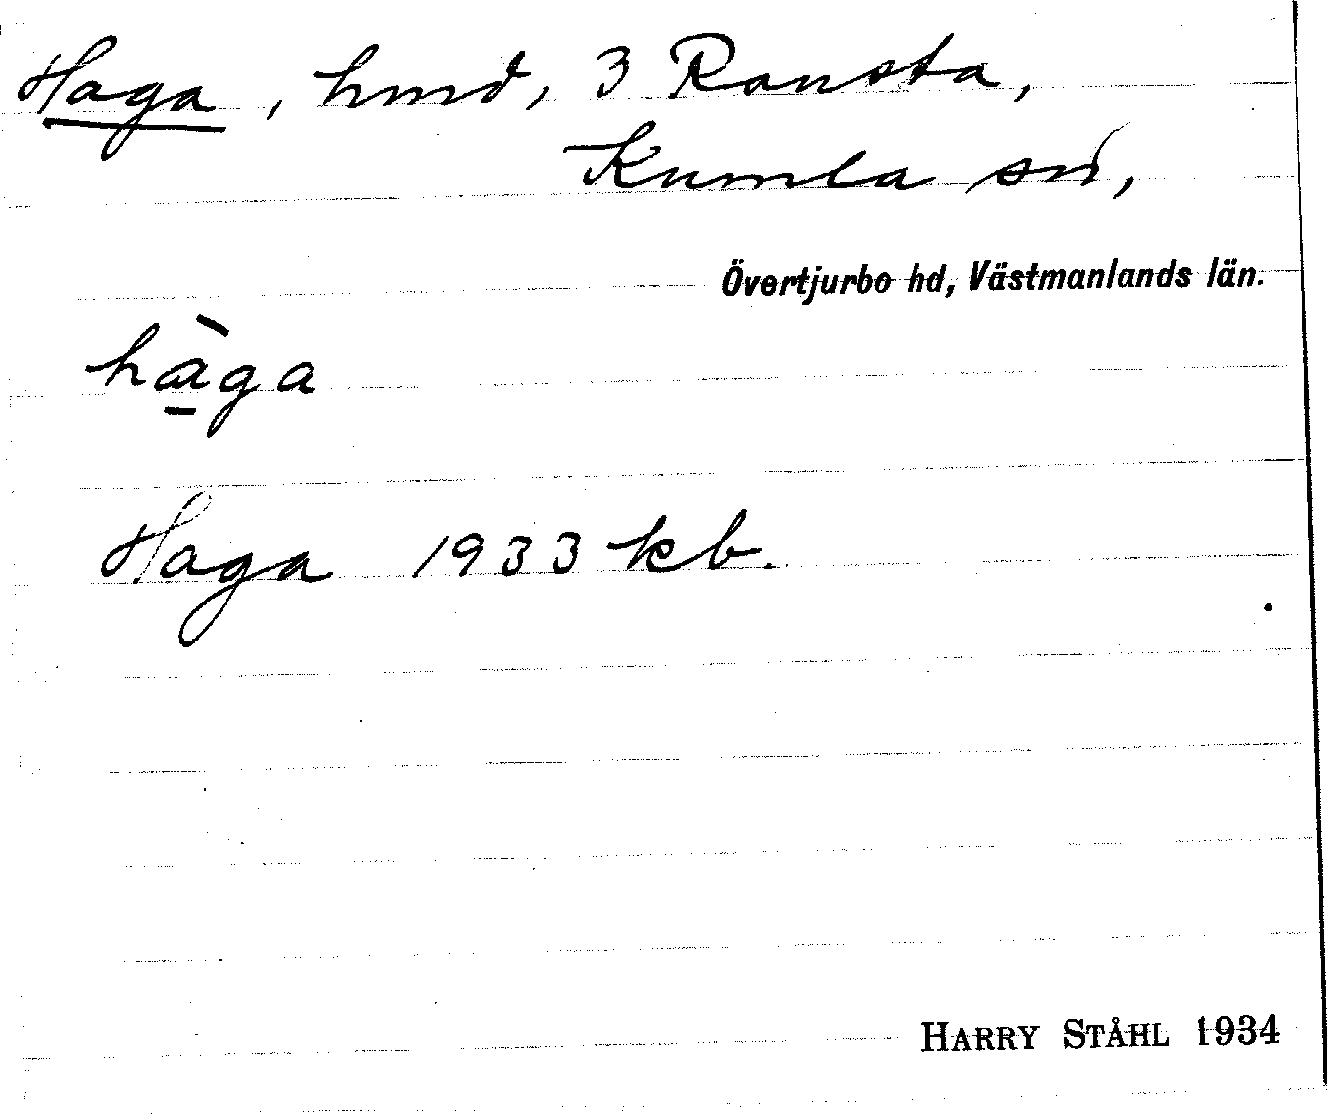 Haga, hmd, 3 Ransta,
Kumla sn,
Övertjurbo hd, Västmanlands län.
hà̱ga
Haga 1933 kb.
HARRY STÅHL 1934